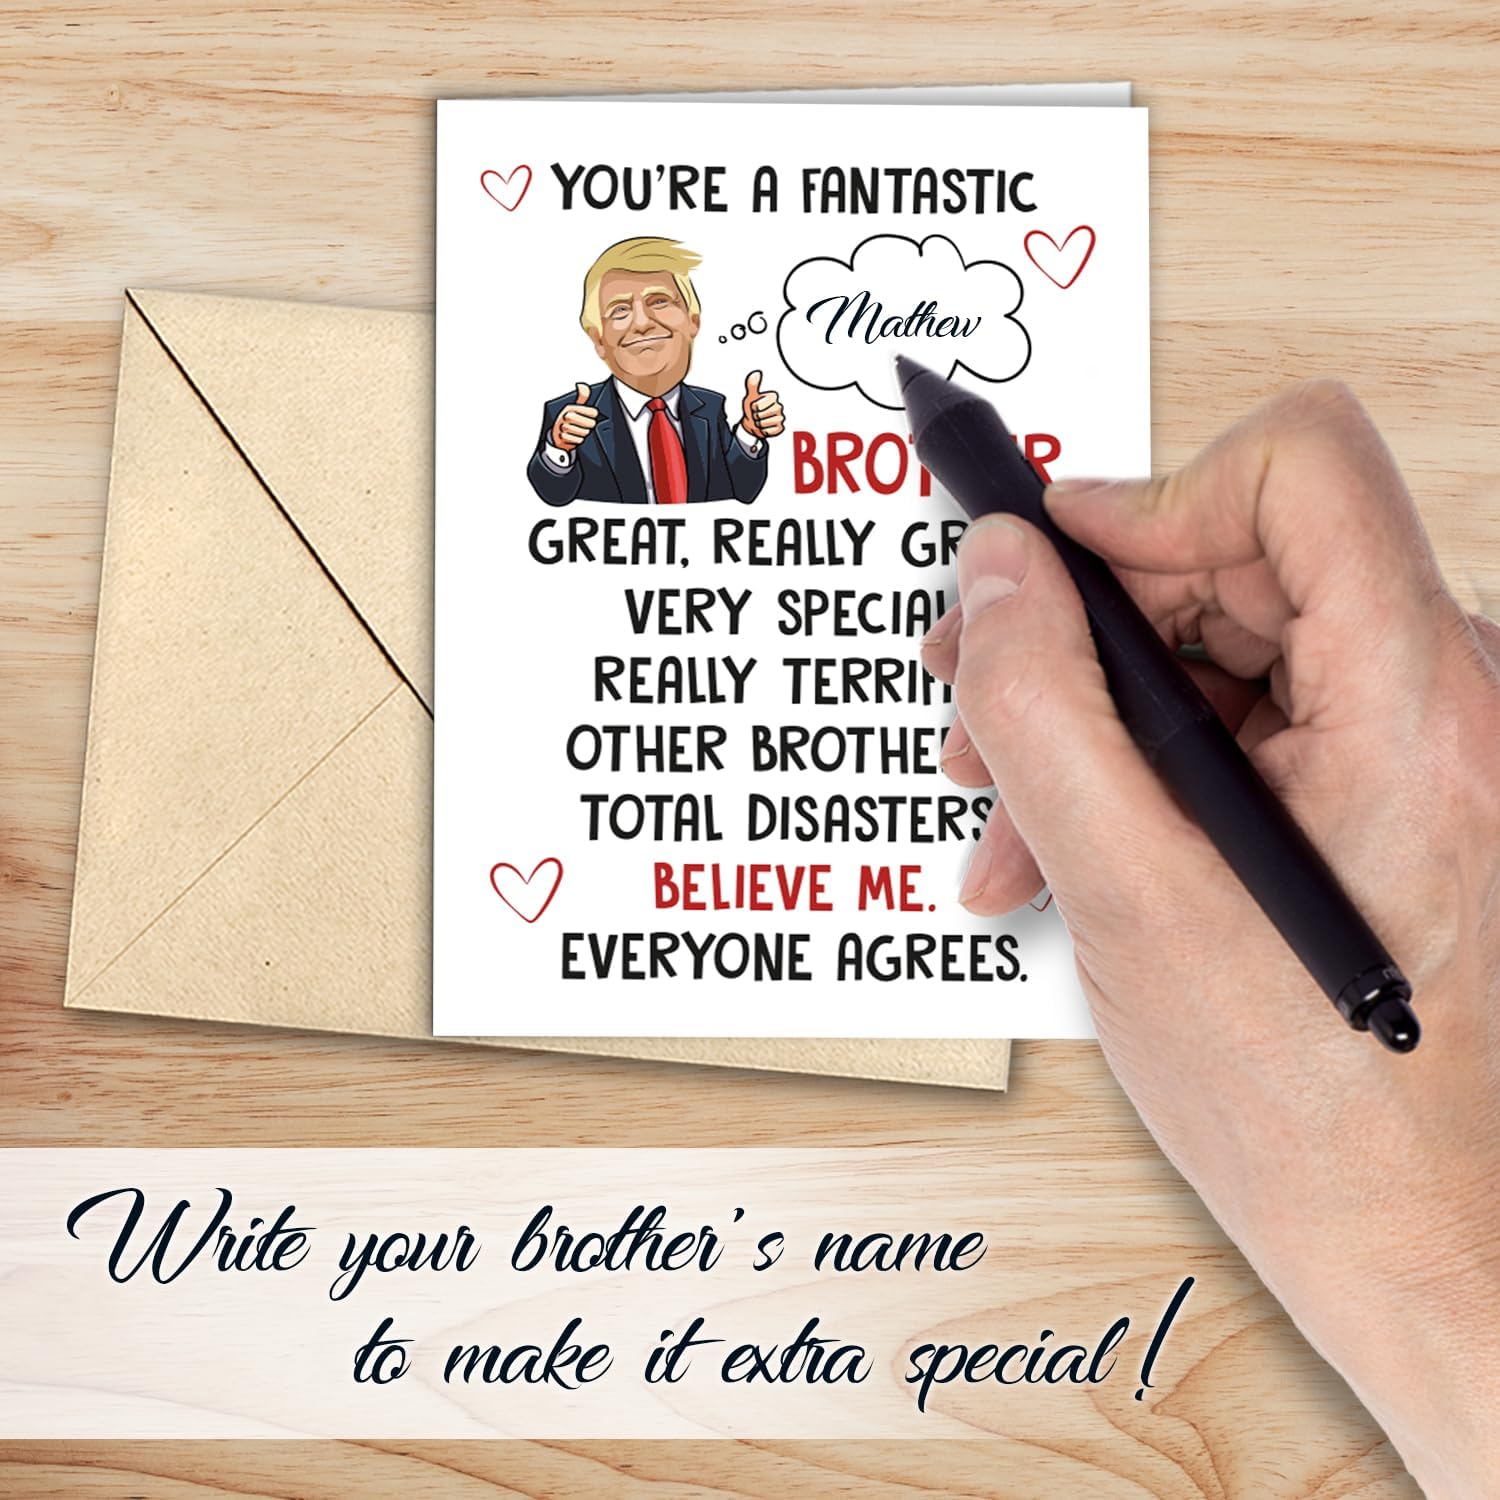 YOU'RE A FANTASTIC
Mathew
GREAT, REALLY
VERY
REALLY
OTHER
TOTAL DISASTERS
BELIEVE ME.
EVERYONE AGREES.
Write your brother's name
to make it extra special!